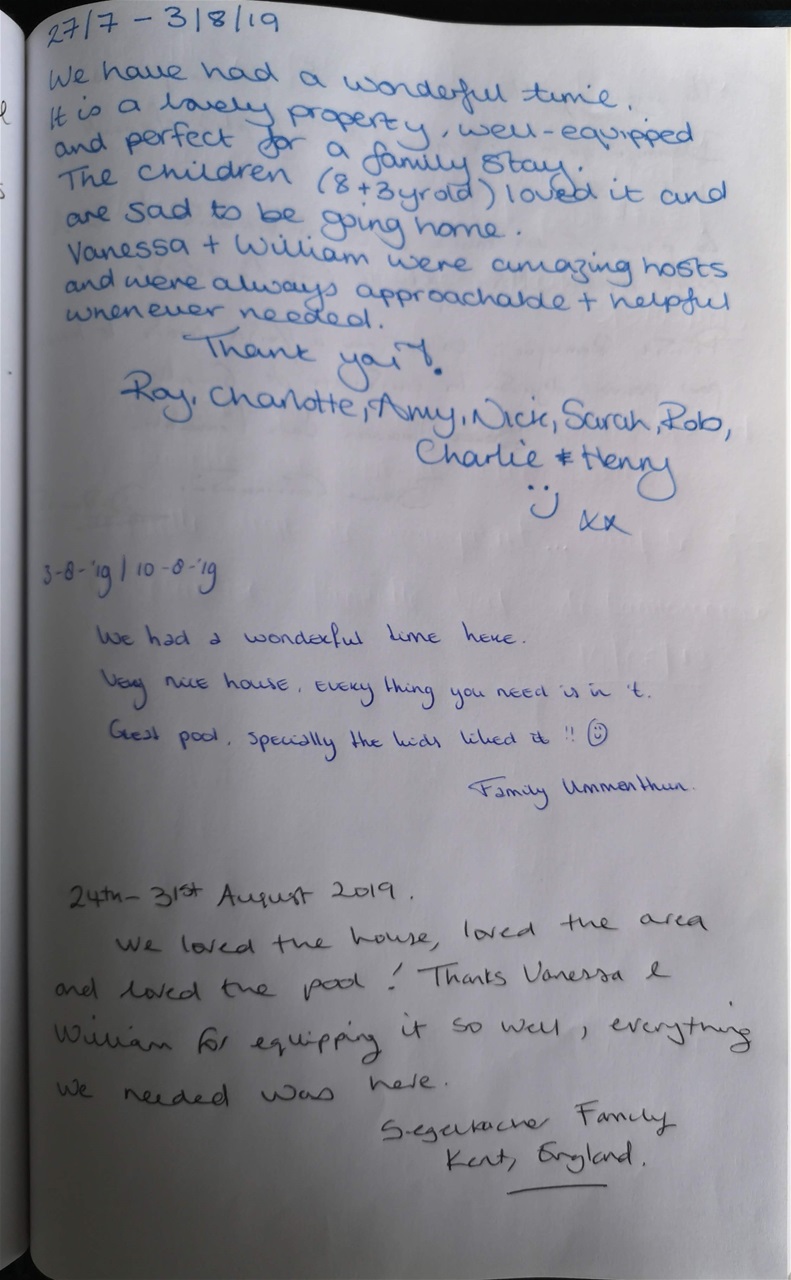 27/7 - 3/8/19
We have had a wonderful time.
It is a lovely property, well-equipped
and perfect for a family stay.
The children (8 + 3yrold) loved it and
are sad to be going home.
Vanessa + William were amazing hosts
and were always approachable + helpful
whenever needed.
Thank you!
Ray, Charlotte, Amy, Nick, Sarah, Rob,
Charlie & Henry
xx
3-8-'19 / 10-8-'19
We had a wonderful time here.
Very nice house, everything you need is in 't.
Great pool, specially the kids liked it !!
Family
24th - 31st August 2019.
We loved the house, loved the area
and loved the pool! Thanks Vanessa &
William for equipping it so well, everything
we needed was here.
Family
Kent, England.